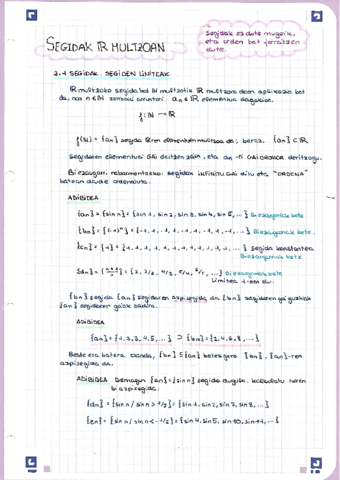 SEGIDAK IR MULTZOAN
Segidak ez dute mugarik,
eta orden bat jarraitzen
dute.
2.1 SEGIDAK. SEGIDEN LIMITEAK
IR multzoko segida bat IN multzotik IR multzora doan aplikazio bat
da, non n ∈ IN zenbaki arruntari an ∈ IR elementua dagokion.
f: IN → IR
f(IN) = {an} segida IRren elementuen multzoa da; beraz, {an} ⊂ IR
segidaren elementuei GAI deitzen zaie, eta an-ri GAI OROKOR deritzogu.
Bi ezaugarri nabarmentzeko: segidak infinitu GAI ditu eta "ORDENA"
batean daude ordenatuta.
ADIBIDEA
{an} = {sin n} = {sin 1, sin 2, sin 3, sin 4, sin 5, ...} Bi ezaugarriak bete
{bn} = {(-1)^n} = {-1, 1, -1, 1, -1, 1, -1, 1, ...} Bi ezaugarriak bete.
{cn} = {1} = {1, 1, 1, 1, 1, 1, 1, 1, 1, ...} segida konstantea
Bi ezaugarriak bete
{dn} = {n+1/n} = {2, 3/2, 4/3, 5/4, 6/5, ...} Bi ezaugarriak bete
Limitea 1-ean du.
{bn} segida {an} segidaren azpisegida da {bn} segidaren gai guztiak
{an} segidaren gaiak badira.
ADIBIDEA
{an} = {1, 2, 3, 4, 5, ...} ⊃ {bn} = {2, 4, 6, 8, ...}
Beste era batera esanda, {bn} ⊆ {an} betez gero {bn}, {an}-ren
azpisegida da.
ADIBIDEA Demagun {an} = {sin n} segida dugula. Kalkulatu haren
bi azpisegida.
{dn} = {sin n / sin n > 1/2} = {sin 1, sin 2, sin 7, sin 8, ...}
{en} = {sin n / sin n < -1/2} = {sin 4, sin 5, sin 10, sin 11, ...}